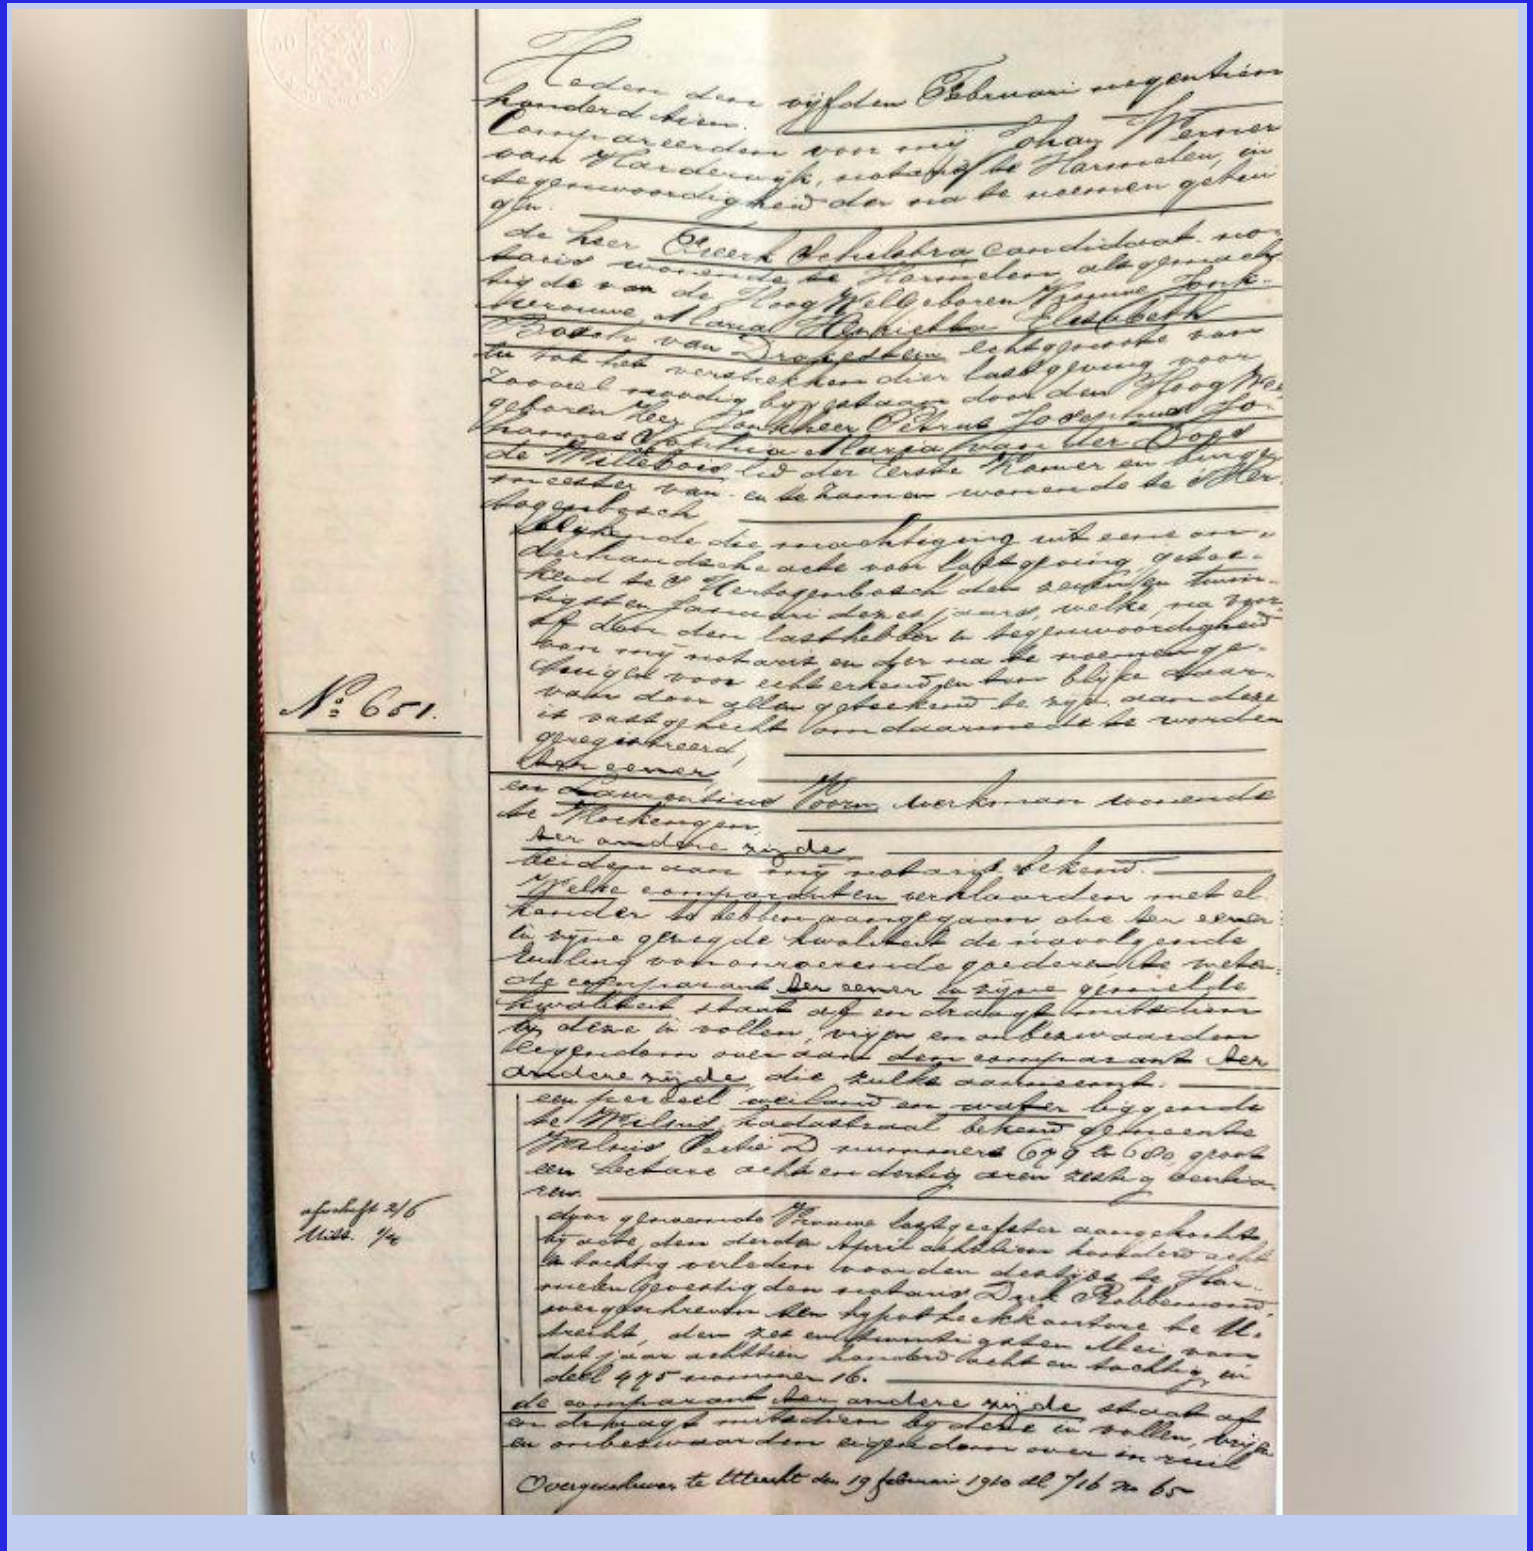 Heden den vijfden Februari negentien
honderd tien.
Compareerden voor mij Johan Werner
van Harderwijk, notaris te Harmelen, in
tegenwoordigheid der na te noemen getui
gen.
de heer Sjeerk Schelstra candidaat-no-
taris wonende te Harmelen, als gemach
tigde van de Hoog WelGeboren Vrouwe Jonk-
vrouwe Maria Henrietta Elisabeth
Bosch van Drakestein echtgenoote van
en tot het verstrekken dier lastgeving voor
zooveel noodig bijgestaan door den Hoog Wel
geboren Heer Jonkheer Petrus Josephus Jo-
hannes Sophia Maria van der Does
de Willebois lid der Eerste Kamer en burge
meester van en te zamen wonende te 's Her-
togenbosch
blijkende die machtiging uit eene on-
derhandsche acte van lastgeving, getee-
kend te 's Hertogenbosch den zeven en twin-
tigsten Januari dezes jaars, welke, na voor
af door den lasthebber in tegenwoordigheid
van mij notaris en der na te noemen ge-
tuigen voor echt erkend en ten blijke daar-
van door allen geteekend te zijn, aan deze
is vastgehecht om daarmede te worden
geregistreerd,
No 651.
ter eener
en Laurentius Voorn werkman wonende
te Kockengen,
ter andere zijde,
beiden aan mij notaris bekend.
Welke comparanten verklaarden met el
kander te hebben aangegaan die ter eener
in zijne gezegde kwaliteit de navolgende
ruiling van onroerende goederen te weten:
de comparant ter eener in zijne gemelde
kwaliteit staat af en draagt mitsdien
bij deze in vollen, vrijen en onbezwaarden
eigendom over aan den comparant ter
andere zijde, die zulks aanneemt.
een perceel weiland en water liggende
te Wilnis, kadastraal bekend gemeente
Wilnis Sectie D nummers 679 en 680, groot
een hectare acht en dertig aren zestig centia
ren.
afschrift 2/6
door genoemde Vrouwe lastgeefster aangekocht
bij acte, den derde April achttien honderd acht
en tachtig verleden voor den destijds te Har-
melen gevestigden notaris Dirk Robbemond,
overgeschreven ten hypotheekkantore te U-
trecht, den zes en twintigsten Mei van
dat jaar achttien honderd acht en tachtig, in
deel 475 nommer 16.
de comparant ter andere zijde staat af
en draagt mitsdien bij deze in vollen, vrijen
en onbezwaarden eigendom over in ruil
Overgeschreven te Utrecht den 19 februari 1910 dl 716 no 65